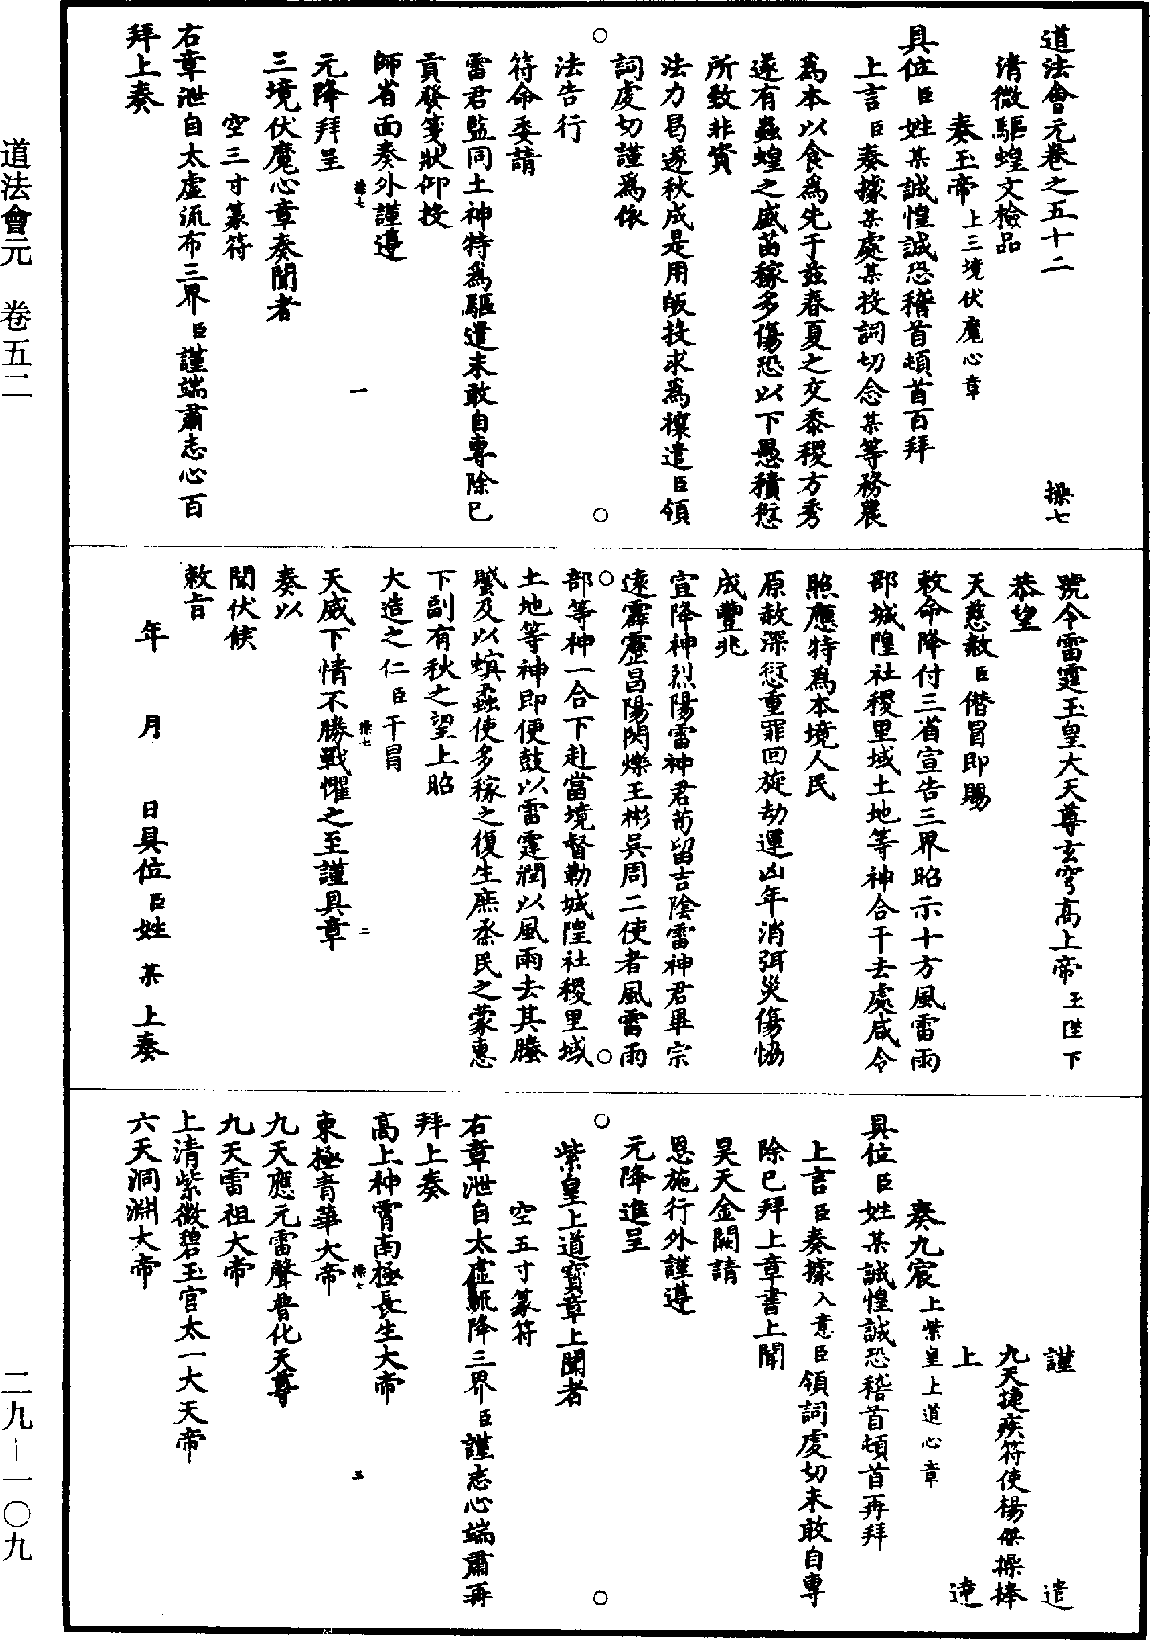 道法會元卷之五十二　操七
清微驅蝗文檢品
奏玉帝上三境伏魔心章
具位臣姓某誠惶誠恐稽首頓首百拜
上言臣奏據某處某投詞切念某等務農
為本以食為先于茲春夏之交黍稷方秀
遂有蟲蝗之盛苗稼多傷恐以下愚積愆
所致非資
法力曷遂秋成是用皈投求為禳遣臣領
詞虔切謹為依
法告行
符命委請
雷君監同土神特為驅遣未敢自專除已
貢發箋狀仰投
師省面奏外謹遵
元降拜呈
三境伏魔心章奏聞者
空三寸篆符
右章泄自太虛流布三界臣謹端肅志心百
拜上奏
操七　一
號令雷霆玉皇大天尊玄穹高上帝玉陛下
恭望
天慈赦臣僭冒即賜
敕命降付三省宣告三界昭示十方風雷雨
部城隍社稷里域土地等神合干去處咸令
照應特為本境人民
原赦深愆重罪回旋劫運凶年消弭災傷協
成豐兆
宣降神烈陽雷神君苟留吉陰雷神君畢宗
遠霹靂呂陽閃爍王彬吳周二使者風雷雨
部等神一合下赴當境督勒城隍社稷里域
土地等神即便鼓以雷霆潤以風雨去其螣
蟘及以蟥蟊使多稼之復生庶烝民之蒙惠
下副有秋之望上昭
大造之仁臣干冒
天威下情不勝戰懼之至謹具章
奏以
聞伏候
敕旨
年　月　日具位臣姓某上奏
操七　二
謹遣
九天捷疾符使楊傑操捧
上達
奏九宸上紫皇上道心章
具位臣姓某誠惶誠恐稽首頓首再拜
上言臣奏據入意臣領詞虔切未敢自專
除已拜上章書上聞
昊天金闕請
恩施行外謹遵
元降進呈
紫皇上道寶章上聞者
空五寸篆符
右章泄自太虛派降三界臣謹志心端肅再
拜上奏
高上神霄南極長生大帝
東極青華大帝
九天應元雷聲普化天尊
九天雷祖大帝
上清紫微碧玉官太一大天帝
六天洞淵大帝
操七　三
道法會元　卷五二
二九—一〇九